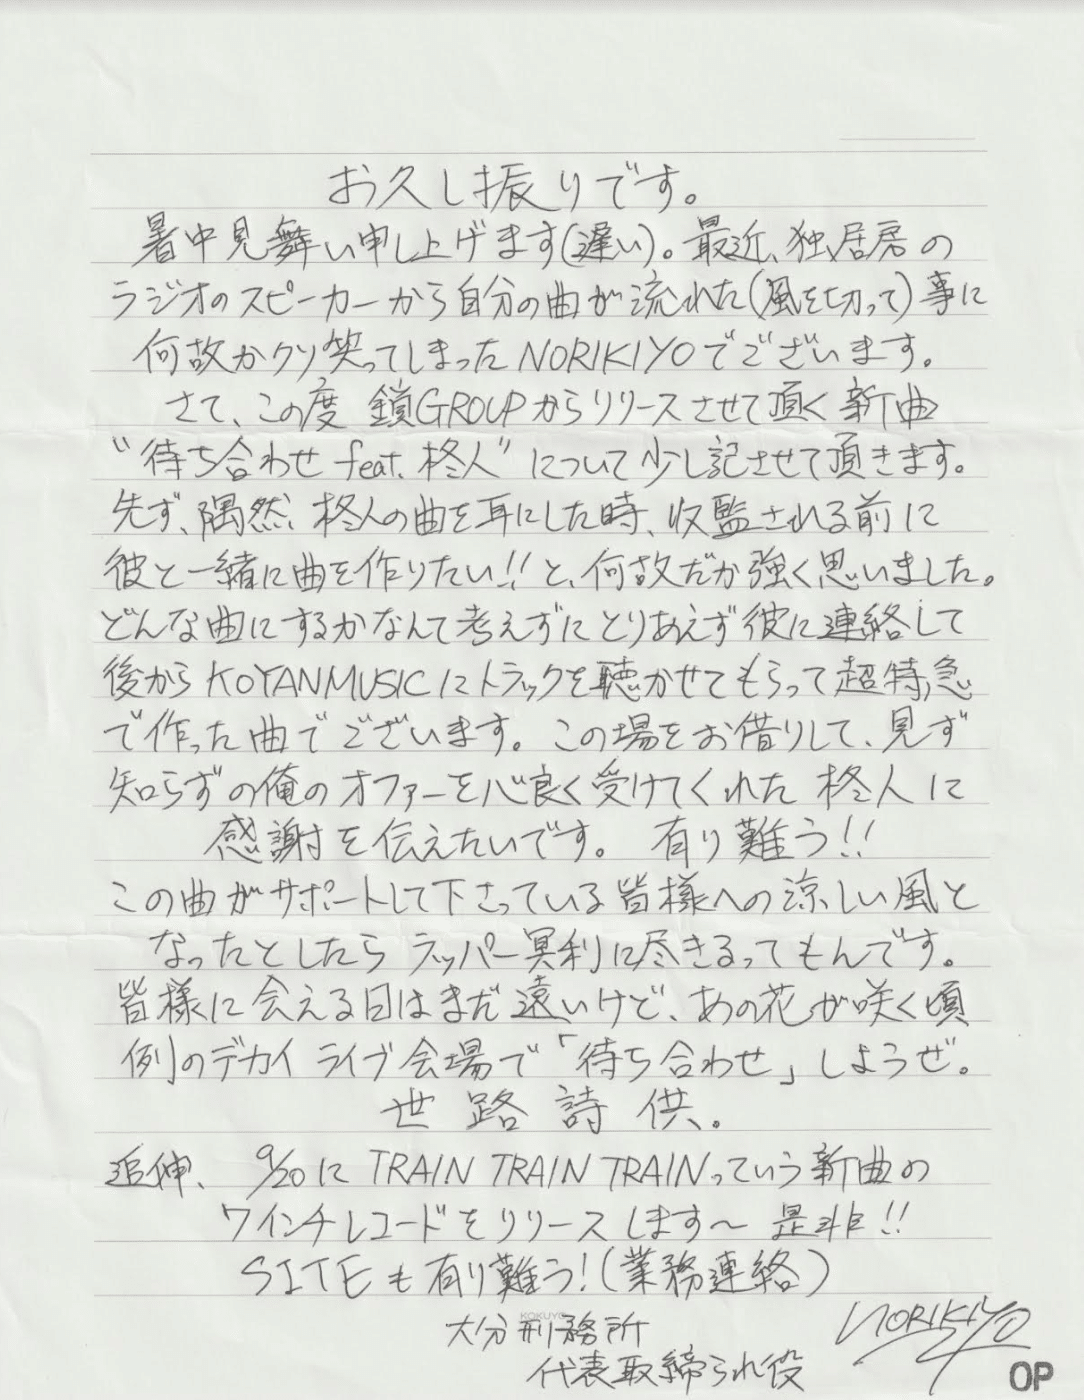 お久し振りです。
暑中見舞い申し上げます(遅い)。最近、独居房の
ラジオのスピーカーから自分の曲が流れた(風を切って)事に
何故かクソ笑ってしまったNORIKIYOでございます。
さて、この度 鎖GROUPからリリースさせて頂く新曲
"待ち合わせ feat. 柊人"について少し記させて頂きます。
先ず、隅然、柊人の曲を耳にした時、収監される前に
彼と一緒に曲を作りたい!!と、何故だか強く思いました。
どんな曲にするかなんて考えずにとりあえず彼に連絡して
後からKOYANMUSICにトラックを聴かせてもらって超特急
で作った曲でございます。この場をお借りして、見ず
知らずの俺のオファーを心良く受けてくれた柊人に
感謝を伝えたいです。有り難う!!
この曲がサポートして下さっている皆様への涼しい風と
なったとしたらラッパー冥利に尽きるってもんです。
皆様に会える日はまだ遠いけど、あの花が咲く頃
例のデカイライブ会場で「待ち合わせ」しようぜ。
世路詩供。
追伸、 9/20にTRAIN TRAIN TRAINっていう新曲の
7インチレコードをリリースします〜 是非!!
SITEも有り難う!(業務連絡)
KOKUYO
大分刑務所
代表取締られ役
NORIKIYO
OP